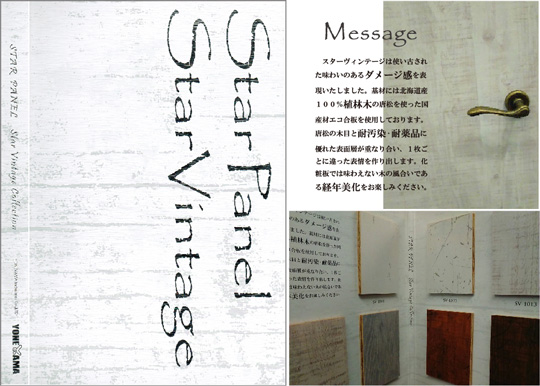 Star Panel
Star Vintage
STAR PANEL Star Vintage Collection
Message
スターヴィンテージは使い古され
た味わいのあるダメージ感を表
現いたしました。基材には北海道産
100%植林木の唐松を使った国
産材エコ合板を使用しております。
唐松の木目と耐汚染・耐薬品に
優れた表面層が重なり合い、1枚ご
とに違った表情を作り出します。化
粧板では味わえない木の風合いであ
る経年美化をお楽しみください。
STAR PANEL
SV 1013